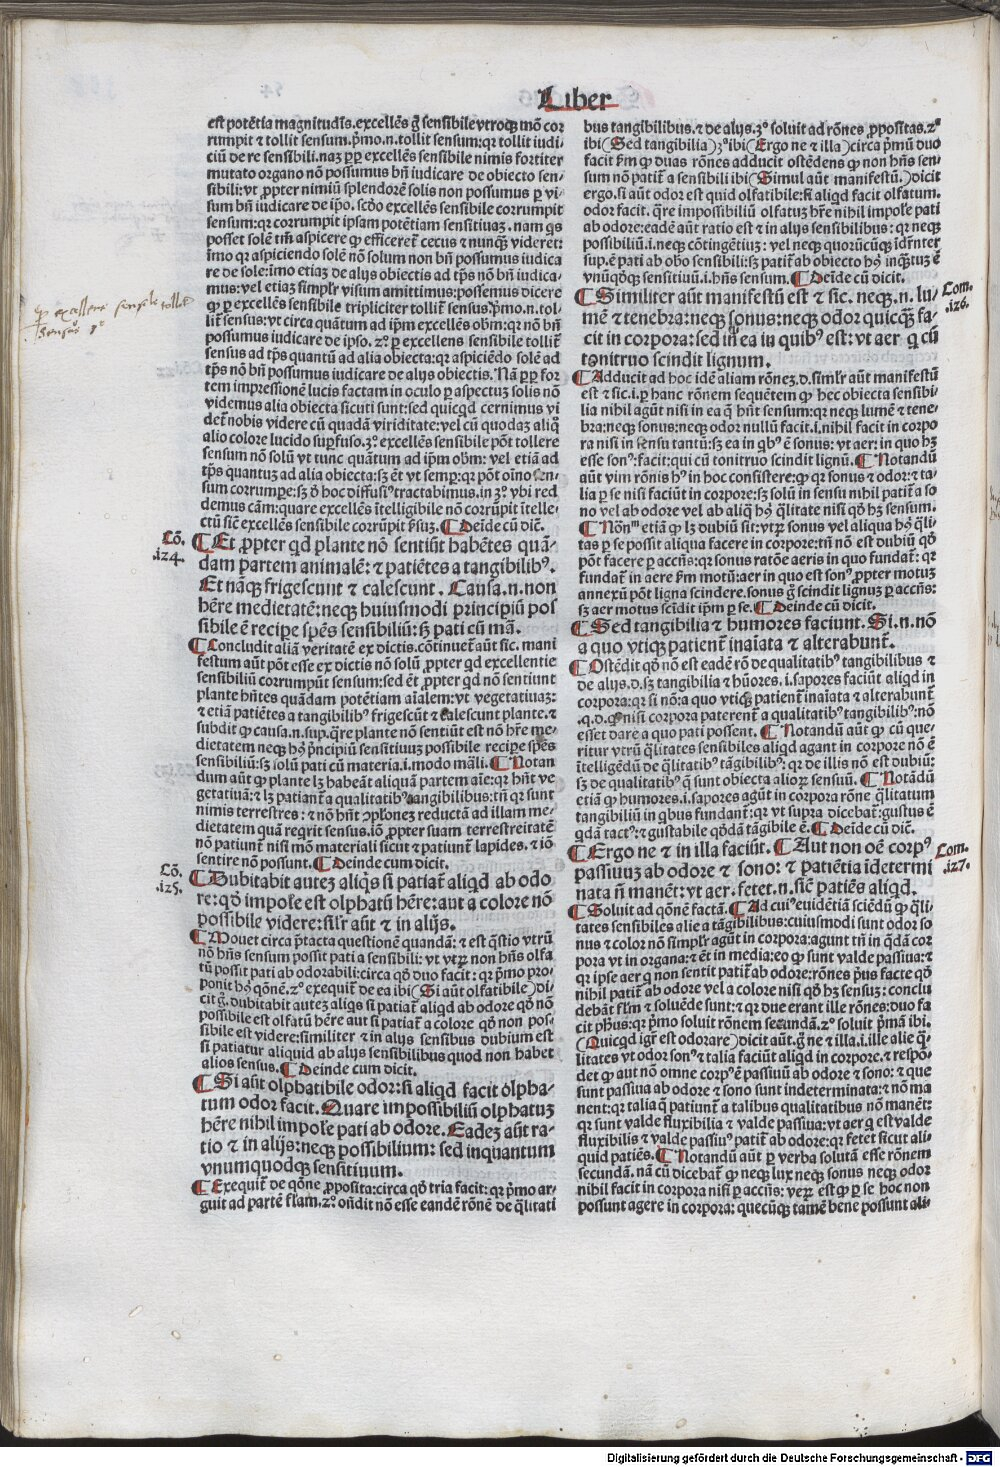 Liber
est potētia magnitudīs. excellēs g̃ sensibile vtroqꝫ mō cor
rumpit ⁊ tollit sensum. p̃mo .n. tollit sensum: qꝛ tollit iudi-
ciū de re sensibili. naꝫ ꝑꝑ excellēs sensibile nimis fortiter
mutato organo nō possumus bn̄ iudicare de obiecto sen-
sibili: vt ꝓpter nimiū splendorē solis non possumus ꝑ vi-
sum bn̄ iudicare de ip̄o. scd̓o excellēs sensibile corrumpit
sensum: qꝛ corrumpit ipsam potētiam sensitiuaꝫ. nam qͥs
posset solē tm̄ aspicere ꝙ efficeret᷑ cecus ⁊ nunqꝫ videret:
īmo qꝛ aspiciendo solē nō solum non bn̄ possumus iudica
re de sole: īmo etiaꝫ de alijs obiectis ad tp̄s nō bn̄ iudica-
mus: vel etiaꝫ simplr̄ visum amittimus: possemus dicere
ꝙ ꝑ excellēs sensibile tripliciter tollit᷑ sensus. p̃mo .n. tol-
lit᷑ sensus: vt circa quātum ad ip̄m excellēs obm̄: qꝛ nō bn̄
possumus iudicare de ipso. 2º. ꝑ excellens sensibile tollit᷑
sensus ad tp̄s quantū ad alia obiecta: qꝛ aspiciēdo solē ad
tp̄s nō bn̄ possumus iudicare de alijs obiectis. Nā ꝑꝑ for
tem impressionē lucis factam in oculo ꝑ aspectuꝫ solis nō
videmus alia obiecta sicuti sunt: sed quicqd̓ cernimus vi
det᷑ nobis videre cū quadā viriditate: vel cū quodaꝫ aliq̊
alio colore lucido suꝑfuso. 3º. excellēs sensibile pōt tollere
sensum nō solū vt tunc quātum ad ip̄m obm̄: vel etiā ad
tp̄s quantuꝫ ad alia obiecta: sꝫ ēt vt semꝑ: qꝛ pōt oīno sen-
sum corrumpe: sꝫ d̓ hoc diffusiꝰ tractabimus. in 3º. vbi red
demus cām: quare excellēs ītelligibile nō corrūpit ītelle-
ctū sic̄ excellēs sensibile corrūpit p̄sius. ¶ Deīde cū dic̄.
Cō.
.124.
¶ Et ꝓpter qd̓ plante nō sentiūt habētes quā-
dam partem animalē: ⁊ patiētes a tangibilibꝰ.
Et nāqꝫ frigescunt ⁊ calescunt. Causa .n. non
hēre medietatē: neqꝫ huiusmodi principiū pos
sibile ē recipe sp̄es sensibiliū: sꝫ pati cū mā.
¶ Concludit aliā veritatē ex dictis. cōtinuet᷑ aūt sic. mani
festum aūt pōt esse ex dictis nō solū ꝓpter qd̓ excellentie
sensibiliū corrumpūt sensum: sed ēt ꝓpter qd̓ nō sentiunt
plante hn̄tes quādam potētiam aīalem: vt vegetatiuaꝫ:
⁊ etiā patiētes a tangibilibꝰ frigescūt ⁊ calescunt plante. ⁊
subdit ꝙ causa .n. sup. q̄re plante nō sentiūt est nō hr̄e me-
dietatem neqꝫ hꝰ p̄ncipiū sensitiuuꝫ possibile recipe sp̄es
sensibiliū: sꝫ solū pati cū materia .i. modo māli. ¶ Notan
dum aūt ꝙ plante lꝫ habeāt aliquā partem aīe: qꝛ hn̄t ve
getatiuā: ⁊ lꝫ patiant᷑ a qualitatibꝰ tangibilibus: tn̄ qꝛ sunt
nimis terrestres: ⁊ nō hn̄t ɔplonez reductā ad illam me-
dietatem quā reqͥrit sensus. iō ꝓpter suam terrestreitatē
nō patiunt᷑ nisi mō materiali sicut ⁊ patiunt᷑ lapides. ⁊ iō
sentire nō possunt. ¶ Deinde cum dicit.
Cō.
.125.
¶ Dubitabit auteꝫ aliq̓s si patiat᷑ aliqd̓ ab odo
re: qd̓ impole est olphatū hēre: aut a colore nō
possibile videre: silr̄ aūt ⁊ in alijs.
¶ Mouet circa p̄tacta questionē quandā: ⁊ est q̄stio vtrū
nō hn̄s sensum possit pati a sensibili: vt vtrꝫ non hn̄s olfa
tū possit pati ab odorabili: circa qd̓ duo facit: qꝛ p̃mo pro-
ponit hꝰ qōnē. 2º exequit᷑ de ea ibi (Si aūt olfatibile) di-
cit g̊. dubitabit auteꝫ aliq̓s si patiat᷑ aliqd̓ ab odore qd̓ nō
possibile est olfatū hēre aut si patiat᷑ a colore qd̓ non pos-
sibile est videre: similiter ⁊ in alijs sensibus dubium est
si patiatur aliquid ab alijs sensibilibus quod non habet
alios sensus. ¶ Deinde cum dicit.
¶ Si aūt olphatibile odor: si aliqd̓ facit olpha-
tum odor facit. Quare impossibiliū olphatuꝫ
hēre nihil impole pati ab odore. Eadeꝫ aūt ra-
tio ⁊ in alijs: neqꝫ possibilium: sed inquantum
vnumquodqꝫ sensitiuum.
¶ Exequit᷑ de qōne ꝓposita: circa qd̓ tria facit: qꝛ p̃mo ar-
guit ad partē flam. 2º. oñdit nō esse eandē rōnē de q̄litati
bus tangibilibus. ⁊ de alijs. 3º soluit ad rōnes ꝓpositas. 2ª
ibi (Sed tangibilia) 3ª ibi (Ergo ne ⁊ illa) circa p̃mū duo
facit ẜm ꝙ duas rōnes adducit ostēdens ꝙ non hn̄s sen-
sum nō patit᷑ a sensibili ibi (Simul aūt manifestū.) dicit
ergo. si aūt odor est quid olfatibile: si aliqd̓ facit olfatum.
odor facit. q̄re impossibiliū olfatuꝫ hr̄e nihil impole pati
ab odore: eadē aūt ratio est ⁊ in alijs sensibilibus: qꝛ neqꝫ
possibiliū .i. neqꝫ cōtingētiuꝫ: vel neqꝫ quorūcūqꝫ idr̄nter
sup. ē pati ab obo sensibili: sꝫ patit᷑ ab obiecto hꝰ inq̄tuꝫ ē
vnūqd̓qꝫ sensitiuū .i. hn̄s sensum. ¶ Deīde cū dicit.
Com.
.126.
¶ Similiter aūt manifestū est ⁊ sic. neqꝫ .n. lu-
mē ⁊ tenebra: neqꝫ sonus: neqꝫ odor quicqꝫ fa-
cit in corpora: sed in ea in quibꝰ est: vt aer q̄ cū
tonitruo scindit lignum.
¶ Adducit ad hoc idē aliam rōneꝫ .d. simlr̄ aūt manifestū
est ⁊ sic .i. ꝑ hanc rōnem sequētem ꝙ hec obiecta sensibi-
lia nihil agūt nisi in ea q̄ hn̄t sensum: qꝛ neqꝫ lumē ⁊ tene-
bra: neqꝫ sonus: neqꝫ odor nullū facit .i. nihil facit in corpo
ra nisi in sensu tantū: sꝫ ea in qͥbꝰ ē sonus: vt aer: in quo hꝫ
esse sonꝰ: facit: qui cū tonitruo scindit lignū. ¶ Notandū
aūt vim rōnis hꝰ in hoc consistere: ꝙ qꝛ sonus ⁊ odor: ⁊ ta-
lia ꝑ se nisi faciūt in corpore: sꝫ solū in sensu nihil patit᷑ a so
no vel ab odore vel ab aliq̊ hꝰ q̄litate nisi qd̓ hꝫ sensum.
¶ Nōn̄ᵐ etiā ꝙ lꝫ dubiū sit: vtrꝫ sonus vel aliqua hꝰ q̄li-
tas ꝑ se possit aliqua facere in corpore: tn̄ nō est dubiū qd̓
pōt facere ꝑ accn̄s: qꝛ sonus ratōe aeris in quo fundat᷑: qꝛ
fundat᷑ in aere ẜm motū: aer in quo est sonꝰ ꝓpter motuꝫ
annexū pōt ligna scindere. sonus g̊ scindit lignuꝫ ꝑ accn̄s:
sꝫ aer motus scīdit ip̄m ꝑ se. ¶ Deinde cū dicit.
¶ Sed tangibilia ⁊ humores faciunt. Si .n. nō
a quo vtiqꝫ patient᷑ inaīata ⁊ alterabunt᷑.
¶ Ostēdit qd̓ nō est eadē rō de qualitatibꝰ tangibilibus ⁊
de alijs .d. sꝫ tangibilia ⁊ hūores .i. sapores faciūt aliqd̓ in
corpora: qꝛ si nō: a quo vtiqꝫ patient᷑ inaīata ⁊ alterabunt᷑
.q.d. ꝙ nisi corpora paterent᷑ a qualitatibꝰ tangibilibꝰ: nō
esset dare a quo pati possent. ¶ Notandū aūt ꝙ cū que-
ritur vtrū q̄litates sensibiles aliqd̓ agant in corpore nō ē
ītelligēdū de q̄litatibꝰ tāgibilibꝰ: qꝛ de illis nō est dubiū:
sꝫ de qualitatibꝰ q̄ sunt obiecta alioꝝ sensuū. ¶ Notādū
etiā ꝙ humores .i. sapores agūt in corpora rōne q̄litatum
tangibiliū in qͥbus fundant᷑: qꝛ vt supra dicebat᷑: gustus ē
qͥdā tactꝰ: ⁊ gustabile qd̓dā tāgibile ē. ¶ Deīde cū dic̄.
Com.
.127.
¶ Ergo ne ⁊ in illa faciūt. ¶ Aut non oē corpꝰ
passiuuꝫ ab odore ⁊ sono: ⁊ patiētia īdetermi
nata ñ manēt: vt aer. fetet .n. sic̄ patiēs aliqd̓.
¶ Soluit ad qōnē factā. ¶ Ad cuiꝰ euidētiā sciēdū ꝙ q̄li-
tates sensibiles alie a tāgibilibus: cuiusmodi sunt odor so
nus ⁊ color nō simplr̄ agūt in corpora: agunt tn̄ in q̄dā cor
pora vt in organa: ⁊ ēt in media: eo ꝙ sunt valde passiua: ⁊
qꝛ ipse aer q̄ non sentit patit᷑ ab odore: rōnes p̄us facte qd̓
nihil patit᷑ ab odore vel a colore nisi qd̓ hꝫ sensuꝫ: conclu
debāt flm ⁊ soluēde sunt: ⁊ qꝛ due erant ille rōnes: duo fa
cit pħus: qꝛ p̃mo soluit rōnem secundā. 2º soluit p̃mā ibi.
(Quicqd̓ igr̄ est odorare) dicit aūt. g̊ ne ⁊ illa .i. ille alie q̄-
litates vt odor sonꝰ ⁊ talia faciūt aliqd̓ in corpore. ⁊ respō-
det ꝙ aut nō omne corpꝰ ē passiuū ab odore ⁊ sono: ⁊ que
sunt passiua ab odore ⁊ sono sunt indeterminata: ⁊ nō ma
nent: qꝛ talia q̄ patiunt᷑ a talibus qualitatibus nō manēt:
qꝛ sunt valde fluxibilia ⁊ valde passiua: vt aer q̄ est valde
fluxibilis ⁊ valde passiuꝰ patit᷑ ab odore: qꝛ fetet sicut ali-
quid patiēs. ¶ Notandū aūt ꝑ verba solutā esse rōnem
secundā. nā cū dicebat᷑ ꝙ neqꝫ lux neqꝫ sonus neqꝫ odor
nihil facit in corpora nisi ꝑ accn̄s: verꝫ est ꝙ ꝑ se hoc non
possunt agere in corpora: quecūqꝫ tamē bene possunt ali-
Digitalisierung gefördert durch die Deutsche Forschungsgemeinschaft - DFG